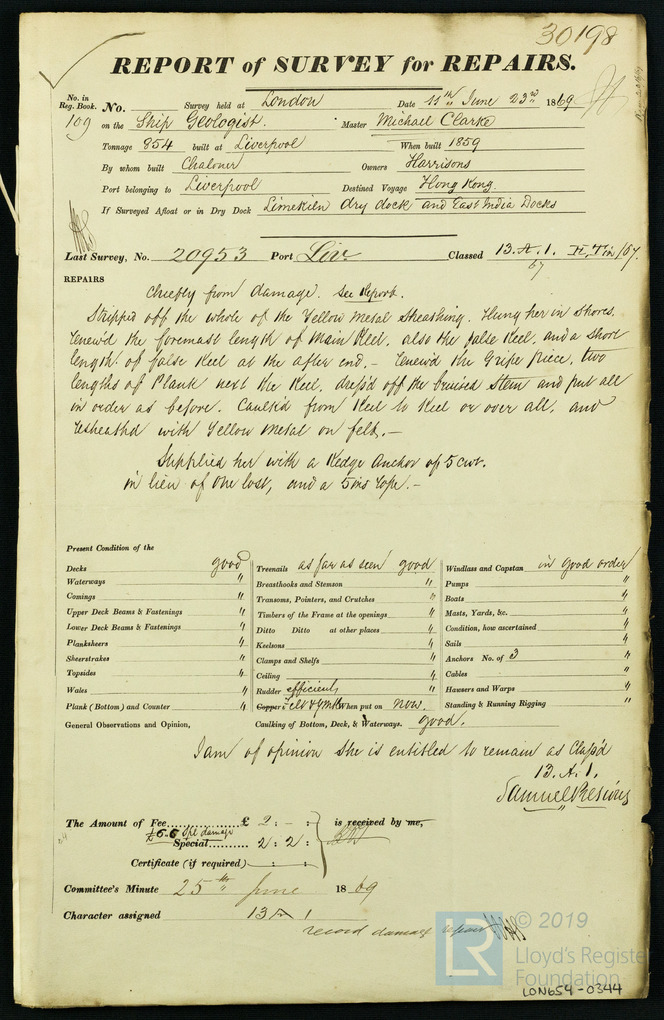 30198
REPORT of SURVEY for REPAIRS.
No. in Reg. Book. No. Survey held at London Date 11th June 23rd 1869
109 on the Ship Geologist. Master Michael Clarke
Tonnage 854 built at Liverpool When built 1859
By whom built Chaloner Owners Harrisons
Port belonging to Liverpool Destined Voyage Hong Kong.
If Surveyed Afloat or in Dry Dock Limekiln dry dock and East India Docks
Last Survey, No. 20953 Port Liv. Classed 13.A.1.
67
REPAIRS
Chiefly from damage. See Report.
Stripped off the whole of the Yellow Metal Sheathing. Hung her in Shores.
Renew'd the foremast length of Main Keel, also the false Keel, and a short
length of false Keel at the after end,- Renew'd the Gripe piece, two
lengths of Plank next the Keel, dress'd off the bruised Stem and put all
in order as before. Caulk'd from Keel to Keel or over all, and
resheath'd with Yellow Metal on felt.-
Supplied her with a Kedge Anchor of 5 cwt.
in lieu of one lost, and a 5 ins rope.-
Present Condition of the
Decks good Treenails as far as seen good Windlass and Capstan in good order
Waterways " Breasthooks and Stemson " Pumps "
Comings " Transoms, Pointers, and Crutches " Boats "
Upper Deck Beams & Fastenings " Timbers of the Frame at the openings " Masts, Yards, &c. "
Lower Deck Beams & Fastenings " Ditto Ditto at other places " Condition, how ascertained "
Planksheers " Keelsons " Sails "
Sheerstrakes " Clamps and Shelfs " Anchors No. of 3 "
Topsides " Ceiling " Cables "
Wales " Rudder efficient Hawsers and Warps "
Plank (Bottom) and Counter " Copper When put on now. Standing & Running Rigging "
General Observations and Opinion, Caulking of Bottom, Deck, & Waterways. good.
I am of opinion she is entitled to remain as Class'd
13.A.1.
Samuel
The Amount of Fee £ 2 : - : is received by me,
£5.5 Spl damage
Special 2 : 2 :
Certificate (if required) : :
Committee's Minute 25th June 1869
Character assigned 13 A 1
record damage repairs
LR
© 2019
Lloyd's Register
Foundation
LON654-0344